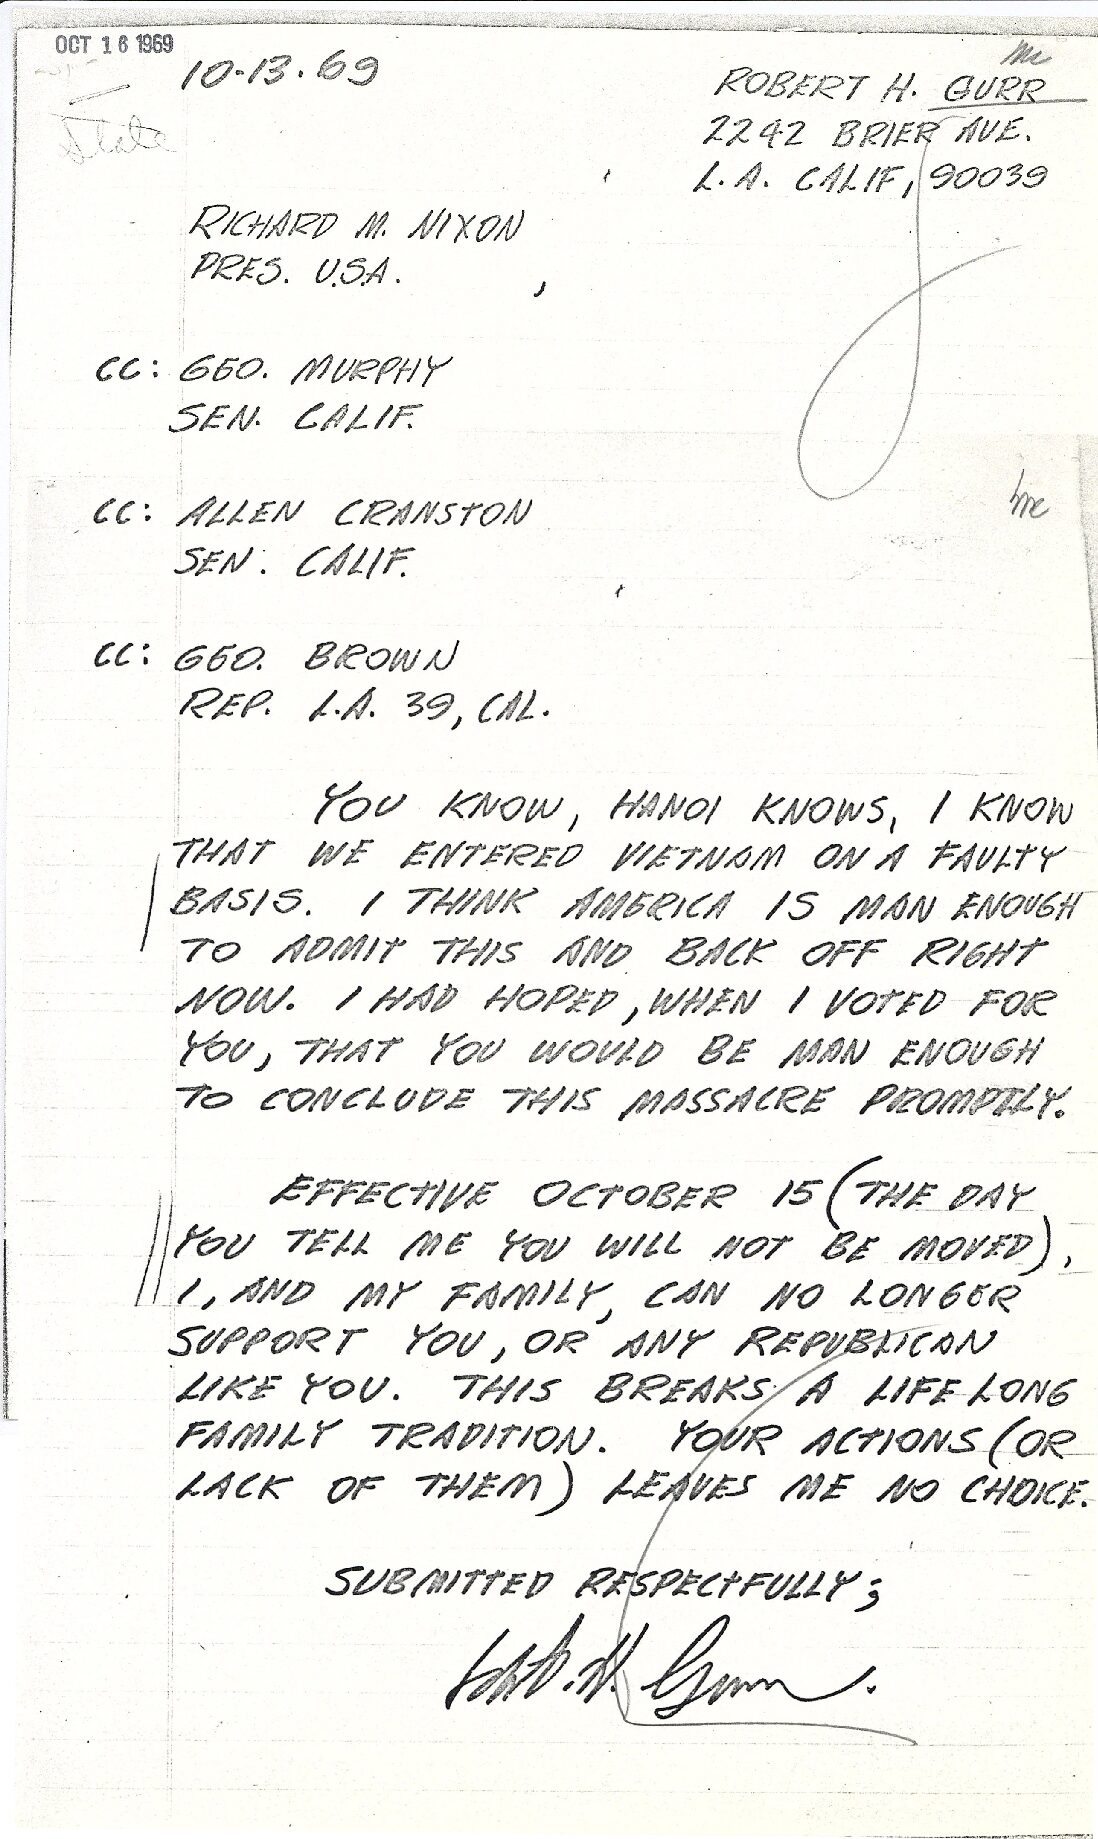 OCT 16 1969
10-13-69
State
ROBERT H. GURR
2242 BRIER AVE.
L.A. CALIF, 90039
RICHARD M. NIXON
PRES. U.S.A.
CC: GEO. MURPHY
SEN. CALIF.
CC: ALLEN CRANSTON
SEN. CALIF.
CC: GEO. BROWN
REP. L.A. 39, CAL.
YOU KNOW, HANOI KNOWS, I KNOW
THAT WE ENTERED VIETNAM ON A FAULTY
BASIS. I THINK AMERICA IS MAN ENOUGH
TO ADMIT THIS AND BACK OFF RIGHT
NOW. I HAD HOPED, WHEN I VOTED FOR
YOU, THAT YOU WOULD BE MAN ENOUGH
TO CONCLUDE THIS MASSACRE PROMPTLY.
EFFECTIVE OCTOBER 15 (THE DAY
YOU TELL ME YOU WILL NOT BE MOVED),
I, AND MY FAMILY, CAN NO LONGER
SUPPORT YOU, OR ANY REPUBLICAN
LIKE YOU. THIS BREAKS A LIFE LONG
FAMILY TRADITION. YOUR ACTIONS (OR
LACK OF THEM) LEAVES ME NO CHOICE.
SUBMITTED RESPECTFULLY;
Robt. H. Gurr.